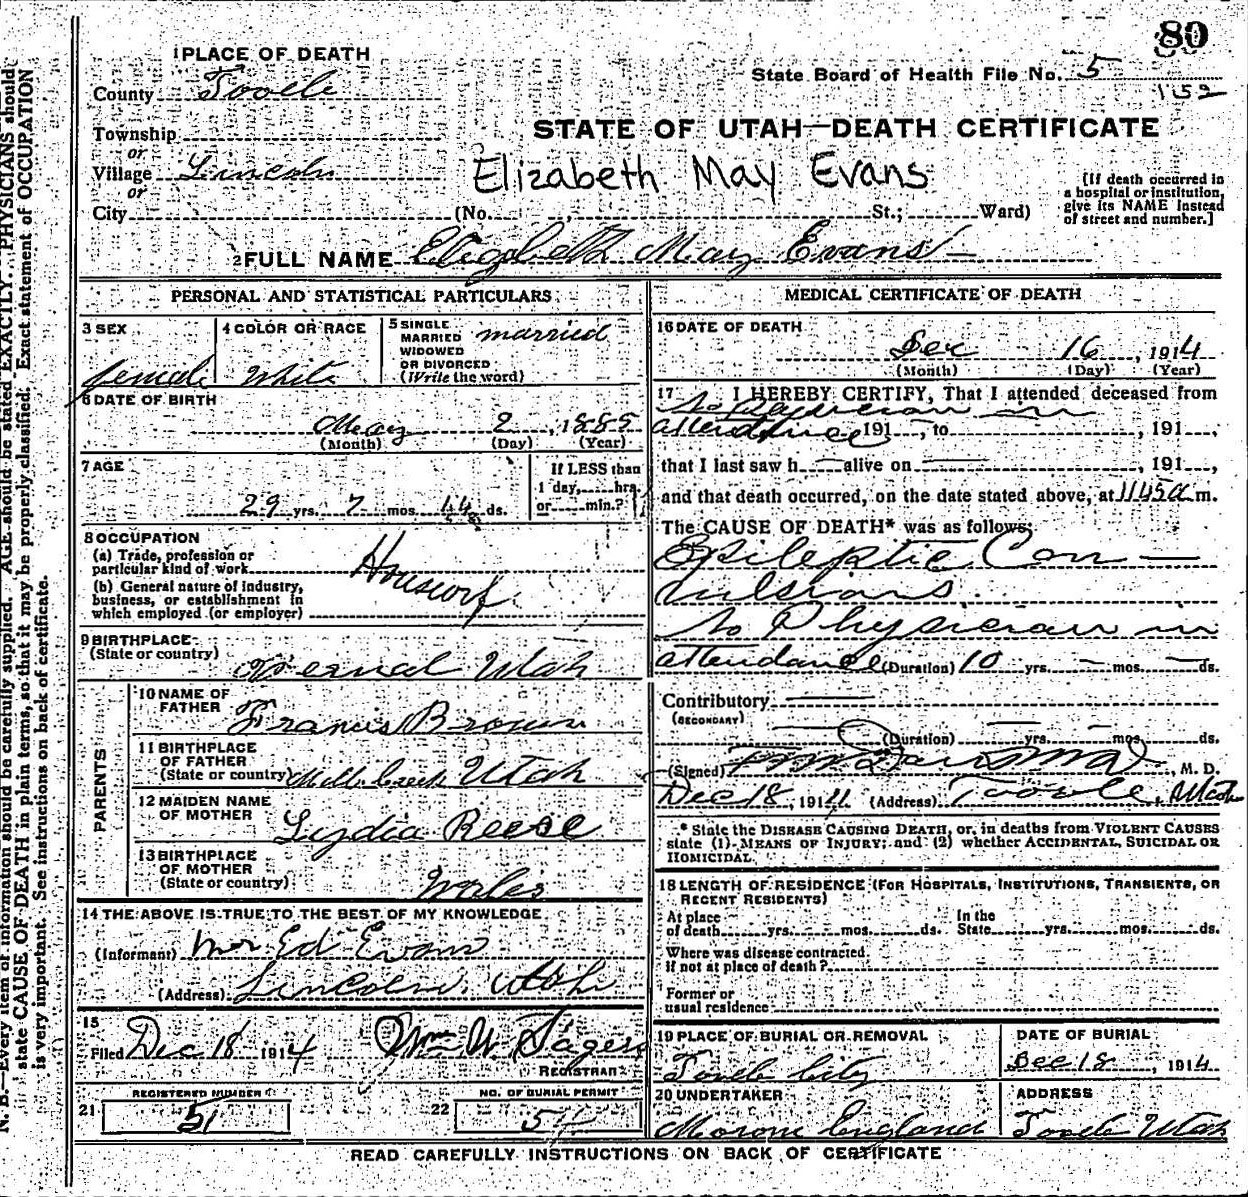 80
1 PLACE OF DEATH
State Board of Health File No. 5
County Tooele
152
STATE OF UTAH—DEATH CERTIFICATE
Township
or
Village Lincoln
Elizabeth May Evans
or
[If death occurred in
a hospital or institution,
give its NAME instead
of street and number.]
City (No. , St.; Ward)
2 FULL NAME Elizabeth May Evans
PERSONAL AND STATISTICAL PARTICULARS
3 SEX
female
4 COLOR OR RACE
White
5 SINGLE
MARRIED
WIDOWED
OR DIVORCED
(Write the word)
married
6 DATE OF BIRTH
May 2, 1885
(Month) (Day) (Year)
7 AGE
29 yrs. 7 mos. 14 ds.
If LESS than
1 day, hrs.
or min.?
8 OCCUPATION
(a) Trade, profession or
particular kind of work
Housework
(b) General nature of industry,
business, or establishment in
which employed (or employer)
9 BIRTHPLACE
(State or country)
Vernal Utah
PARENTS
10 NAME OF
FATHER
Francis Brown
11 BIRTHPLACE
OF FATHER
(State or country) Mill Creek Utah
12 MAIDEN NAME
OF MOTHER
Lydia Reese
13 BIRTHPLACE
OF MOTHER
(State or country)
Wales
14 THE ABOVE IS TRUE TO THE BEST OF MY KNOWLEDGE
(Informant) Mr Ed Evans
(Address) Lincoln, Utah
15
Filed Dec 18 1914 Wm W. Sagers
REGISTRAR
REGISTERED NUMBER
21 51
NO. OF BURIAL PERMIT
22 54
MEDICAL CERTIFICATE OF DEATH
16 DATE OF DEATH
Dec 16, 1914
(Month) (Day) (Year)
17 I HEREBY CERTIFY, That I attended deceased from
No Physician in
attendance 191 , to , 191 ,
that I last saw h alive on , 191 ,
and that death occurred, on the date stated above, at 1145 a m.
The CAUSE OF DEATH* was as follows:
Epileptic Con—
vulsions
No Physician in
attendance (Duration) 10 yrs. — mos. — ds.
Contributory
(SECONDARY)
(Duration) yrs. mos. ds.
(Signed) , M. D.
Dec 18, 1914 (Address) Tooele, Utah
* State the DISEASE CAUSING DEATH, or, in deaths from VIOLENT CAUSES
state (1) MEANS OF INJURY; and (2) whether ACCIDENTAL, SUICIDAL OR
HOMICIDAL.
18 LENGTH OF RESIDENCE (FOR HOSPITALS, INSTITUTIONS, TRANSIENTS, OR
RECENT RESIDENTS)
At place
of death yrs. mos. ds.
In the
State yrs. mos. ds.
Where was disease contracted
if not at place of death?
Former or
usual residence
19 PLACE OF BURIAL OR REMOVAL
Tooele City
DATE OF BURIAL
Dec 18, 1914
20 UNDERTAKER
Morone England
ADDRESS
Tooele Utah
READ CAREFULLY INSTRUCTIONS ON BACK OF CERTIFICATE
N. B.—Every item of information should be carefully supplied. AGE should be stated EXACTLY. PHYSICIANS should
state CAUSE OF DEATH in plain terms, so that it may be properly classified. Exact statement of OCCUPATION
is very important. See instructions on back of certificate.